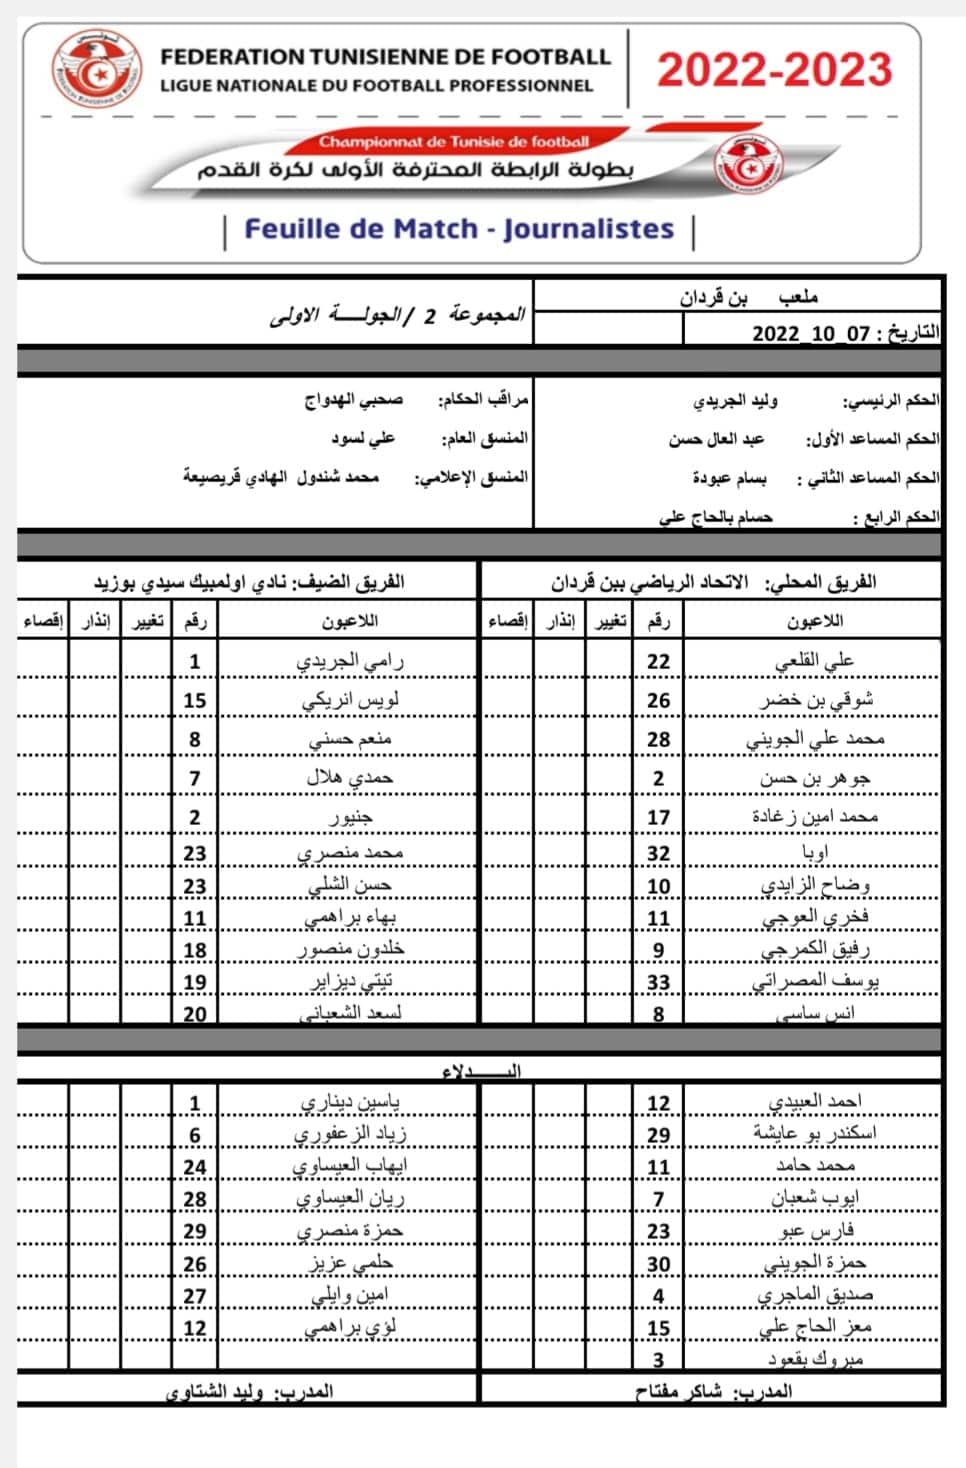 FEDERATION TUNISIENNE DE FOOTBALL
LIGUE NATIONALE DU FOOTBALL PROFESSIONNEL
2022-2023
Championnat de Tunisie de football
بطولة الرابطة المحترفة الأولى لكرة القدم
| Feuille de Match - Journalistes |
ملعب بن قردان
التاريخ : 07_10_2022
المجموعة 2 /الجولـــة الاولى
الحكم الرئيسي: وليد الجريدي
مراقب الحكام: صحبي الهدواج
الحكم المساعد الأول: عبد العال حسن
المنسق العام: علي لسود
الحكم المساعد الثاني : بسام عبودة
المنسق الإعلامي: محمد شندول الهادي قريصيعة
الحكم الرابع : حسام بالحاج علي
الفريق المحلي: الاتحاد الرياضي ببن قردان
الفريق الضيف: نادي اولمبيك سيدي بوزيد
اللاعبون رقم تغيير إنذار إقصاء اللاعبون رقم تغيير إنذار إقصاء
علي القلعي 22 رامي الجريدي 1
شوقي بن خضر 26 لويس انريكي 15
محمد علي الجويني 28 منعم حسني 8
جوهر بن حسن 2 حمدي هلال 7
محمد امين زغادة 17 جنيور 2
اوبا 32 محمد منصري 23
وضاح الزايدي 10 حسن الشلي 23
فخري العوجي 11 بهاء براهمي 11
رفيق الكمرجي 9 خلدون منصور 18
يوسف المصراتي 33 تيتي ديزاير 19
انس ساسي 8 لسعد الشعباني 20
البـــــدلاء
احمد العبيدي 12 ياسين ديناري 1
اسكندر بو عايشة 29 زياد الزعفوري 6
محمد حامد 11 ايهاب العيساوي 24
ايوب شعبان 7 ريان العيساوي 28
فارس عبو 23 حمزة منصري 29
حمزة الجويني 30 حلمي عزيز 26
صديق الماجري 4 امين وايلي 27
معز الحاج علي 15 لؤي براهمي 12
مبروك بقعود 3
المدرب: شاكر مفتاح
المدرب: وليد الشتاوي